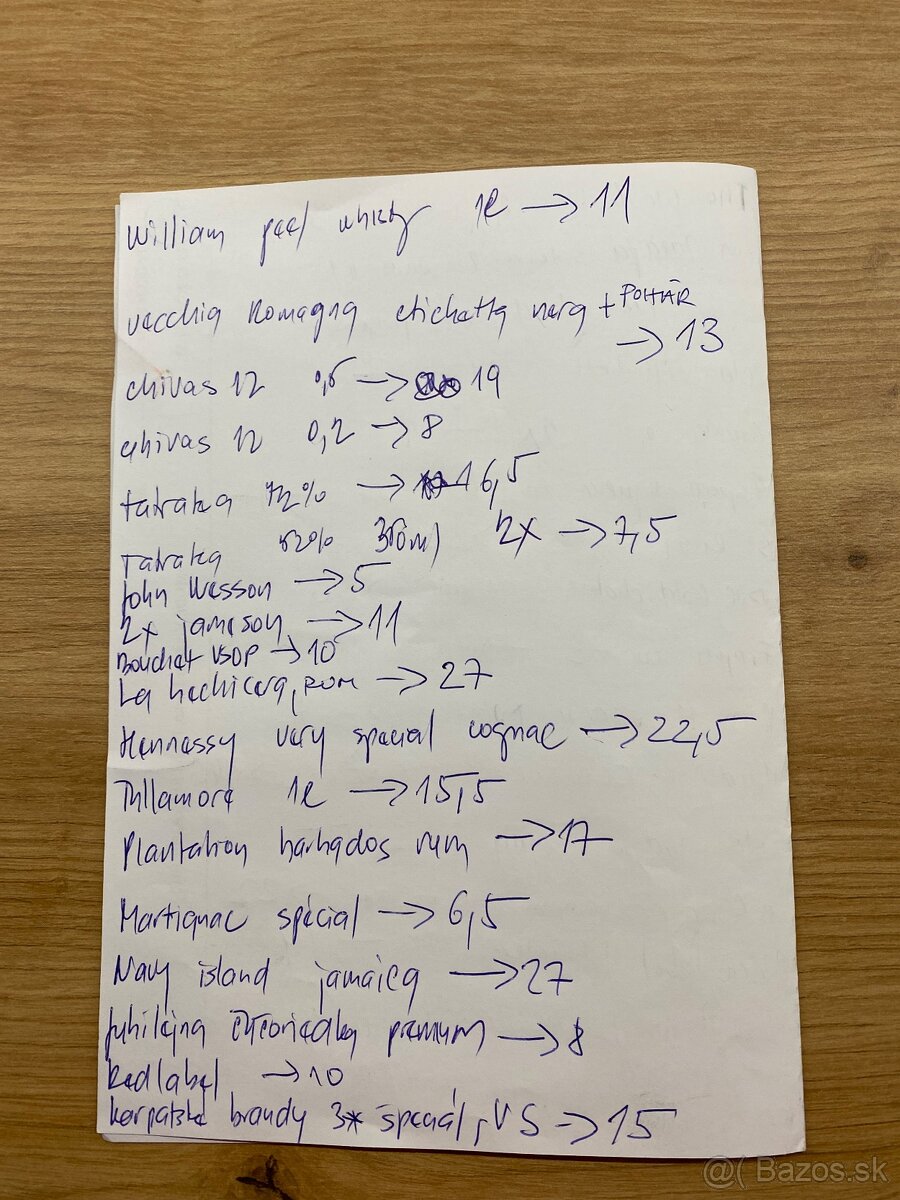 William peel whisky 1l → 11
vecchia Romagna etichetta nera + POHÁR
→ 13
chivas 12 0,5 → 19
chivas 12 0,2 → 8
tatraka 72% → 16,5
Tatraka 52% 350ml 2x → 7,5
John Wesson → 5
2x jameson → 11
Bouchet VSOP → 10
La hechicera, rum → 27
Hennessy very special cognac → 22,5
Tullamore 1l → 15,5
Plantation barbados rum → 17
Martignac spécial → 6,5
Navy island jamaica → 27
Jubilejna čučoriedka premium → 8
Redlabel → 10
karpatské brandy 3* špeciál, VS → 15
@( Bazos.sk